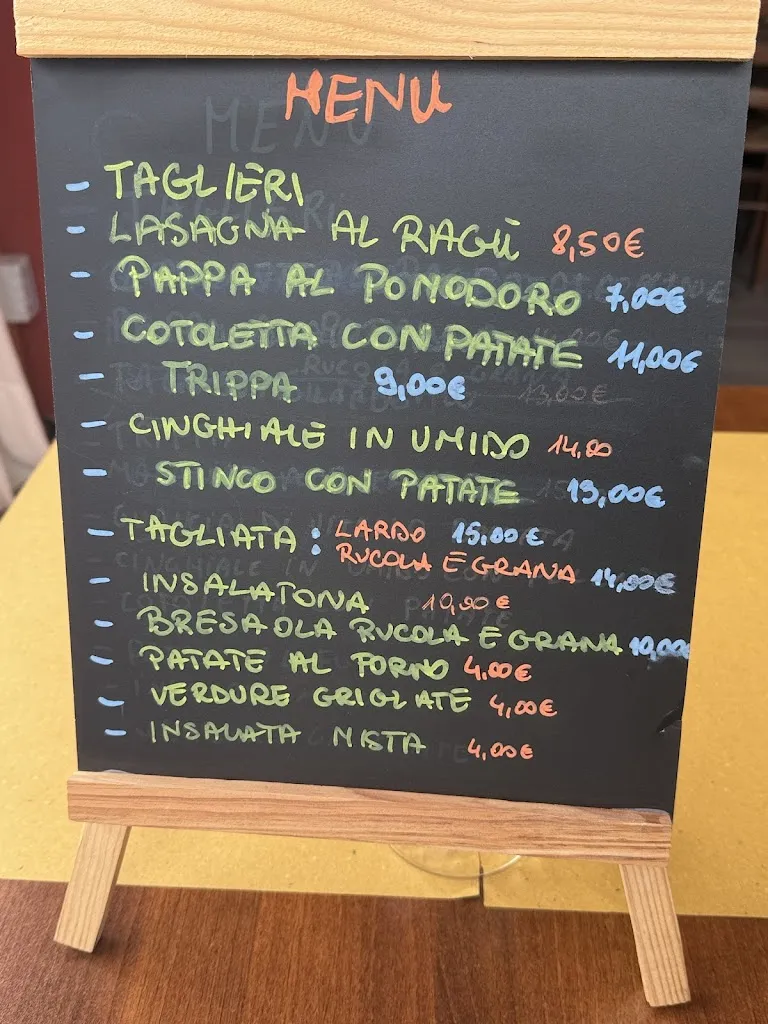 MENU
- TAGLIERI
- LASAGNA AL RAGÙ 8,50€
- PAPPA AL POMODORO 7,00€
- COTOLETTA CON PATATE 11,00€
- TRIPPA 9,00€
- CINGHIALE IN UMIDO 14,00
- STINCO CON PATATE 13,00€
- TAGLIATA: LARDO 15,00€
RUCOLA E GRANA 14,00€
- INSALATONA 10,00€
- BRESAOLA RUCOLA E GRANA 10,00€
- PATATE AL FORNO 4,00€
- VERDURE GRIGLIATE 4,00€
- INSALATA MISTA 4,00€